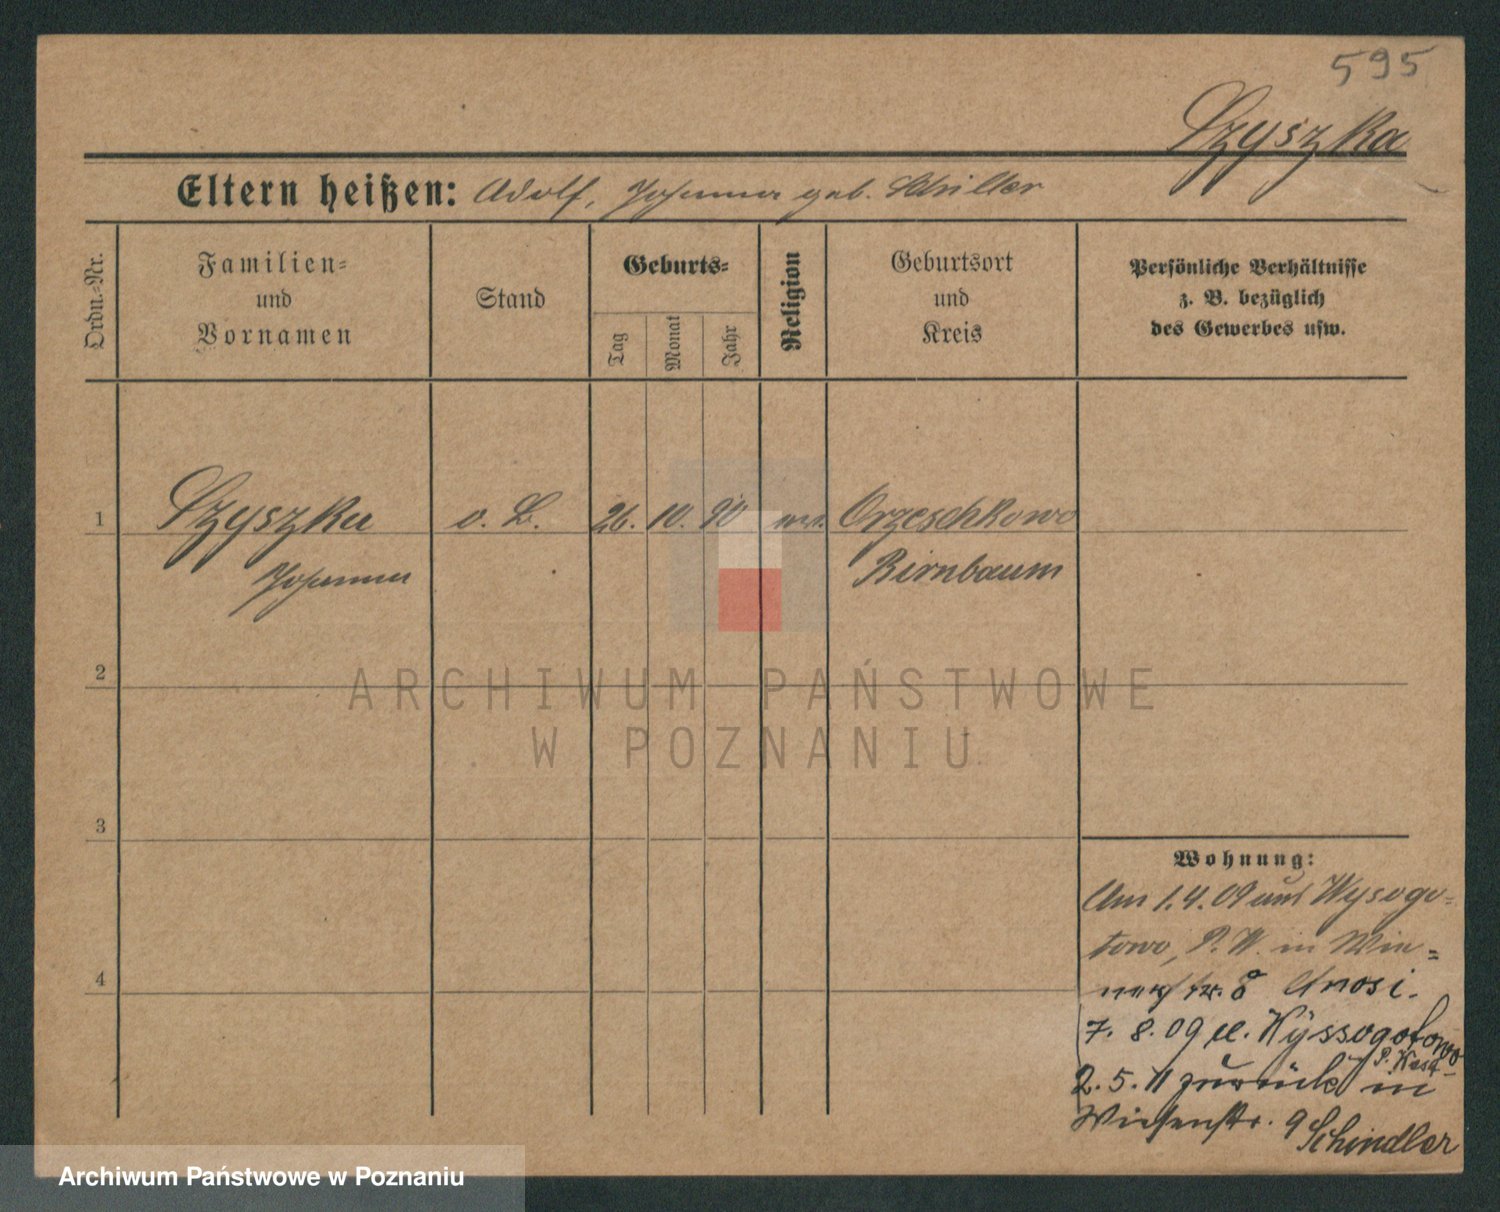 595
Szyszka
Eltern heißen: Adolf, Johanna geb. Schiller
Ordn.-Nr.
Familien-
und
Vornamen
Stand
Geburts-
Tag
Monat
Jahr
Religion
Geburtsort
und
Kreis
Persönliche Verhältnisse
z. B. bezüglich
des Gewerbes usw.
1
Szyszka
o. B.
26. 10. 90
Orzeschkowo
Johanna
Birnbaum
2
ARCHIWUM PAŃSTWOWE
W POZNANIU
3
Wohnung:
Am 1.4.09 aus Wysogo-
towo, P. W. in
8
7. 8. 09 n. Wyssogotowo
2. 5. 11 zurück in
Wiesenstr. 9 Schindler
4
Archiwum Państwowe w Poznaniu